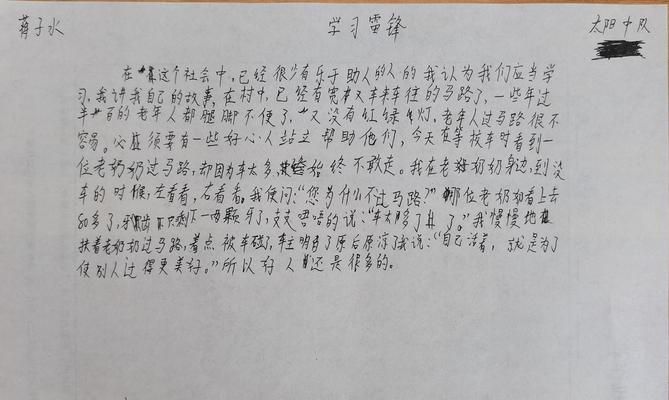 蒋子水 学习雷锋 太阳中队
在这个社会中,已经很少有乐于助人的人的我认为我们应当学
习,我讲我自己的故事,在村中,已经有宽又车来车往的马路了,一些年过
半百的老年人都腿脚不便了,又没有红绿灯,老年人过马路很不
容易。必须要有一些好心人站立帮助他们,今天在等校车时看到一
位老奶奶过马路,却因为车太多,始终不敢走。我在老奶奶身边,到没
车的时候,左看看,右看看。我便问:“您为什么不过马路?”那位老奶奶看上去
80多了,牙齿只剩下一两颗牙了,支支唔唔的说:“车太多了。”我慢慢地
扶着老奶奶过马路,差点被车碰了,车主明白了原后原谅了我说:“自己活着,就是为了
使别人过得更美好。”所以好人还是很多的。